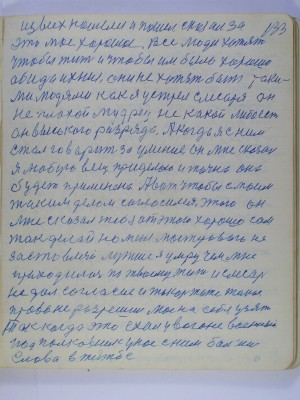 133
из всех нашели и пошел сказал за
это мое хорошое. Все люди хотят
чтобы жить и чтобы им было хорошо
они не хотят быть таки-
ми людями как я устрел слесаря он
не плохой мудрец не какой
он высокого разряда. Я когда с ним
стал говарить за умение он мне сказал
я любую вещ приделаю и точно она
будет применена. А вот чтобы с твоим
таким делом согласился, этого он
мне сказал тебя от этого хорошо сам
так делай но меня не
заставляй лутше я умру чем мне
приходится по твоему жить и слесарь
не дал согласие и токарь тоже такое
право не разрешил мог на себя узять
Так когда это ехал у вагоне военный
подполковник у нас с ним был
слова в